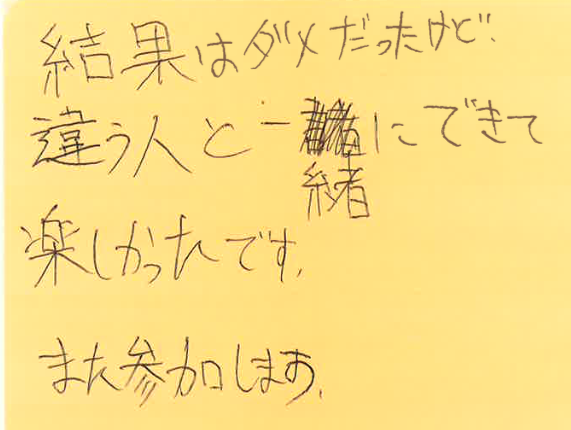 結果はダメだったけど
違う人と一緒にできて
楽しかったです。
また参加します。